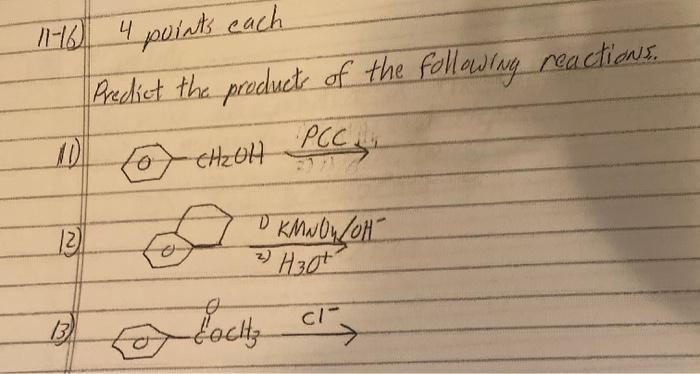 11-16) 4 points each
Predict the products of the following reactions.
11) CH2OH PCC
12) 1) KMnO4/OH-
2) H3O+
13) O
COCH3 Cl-